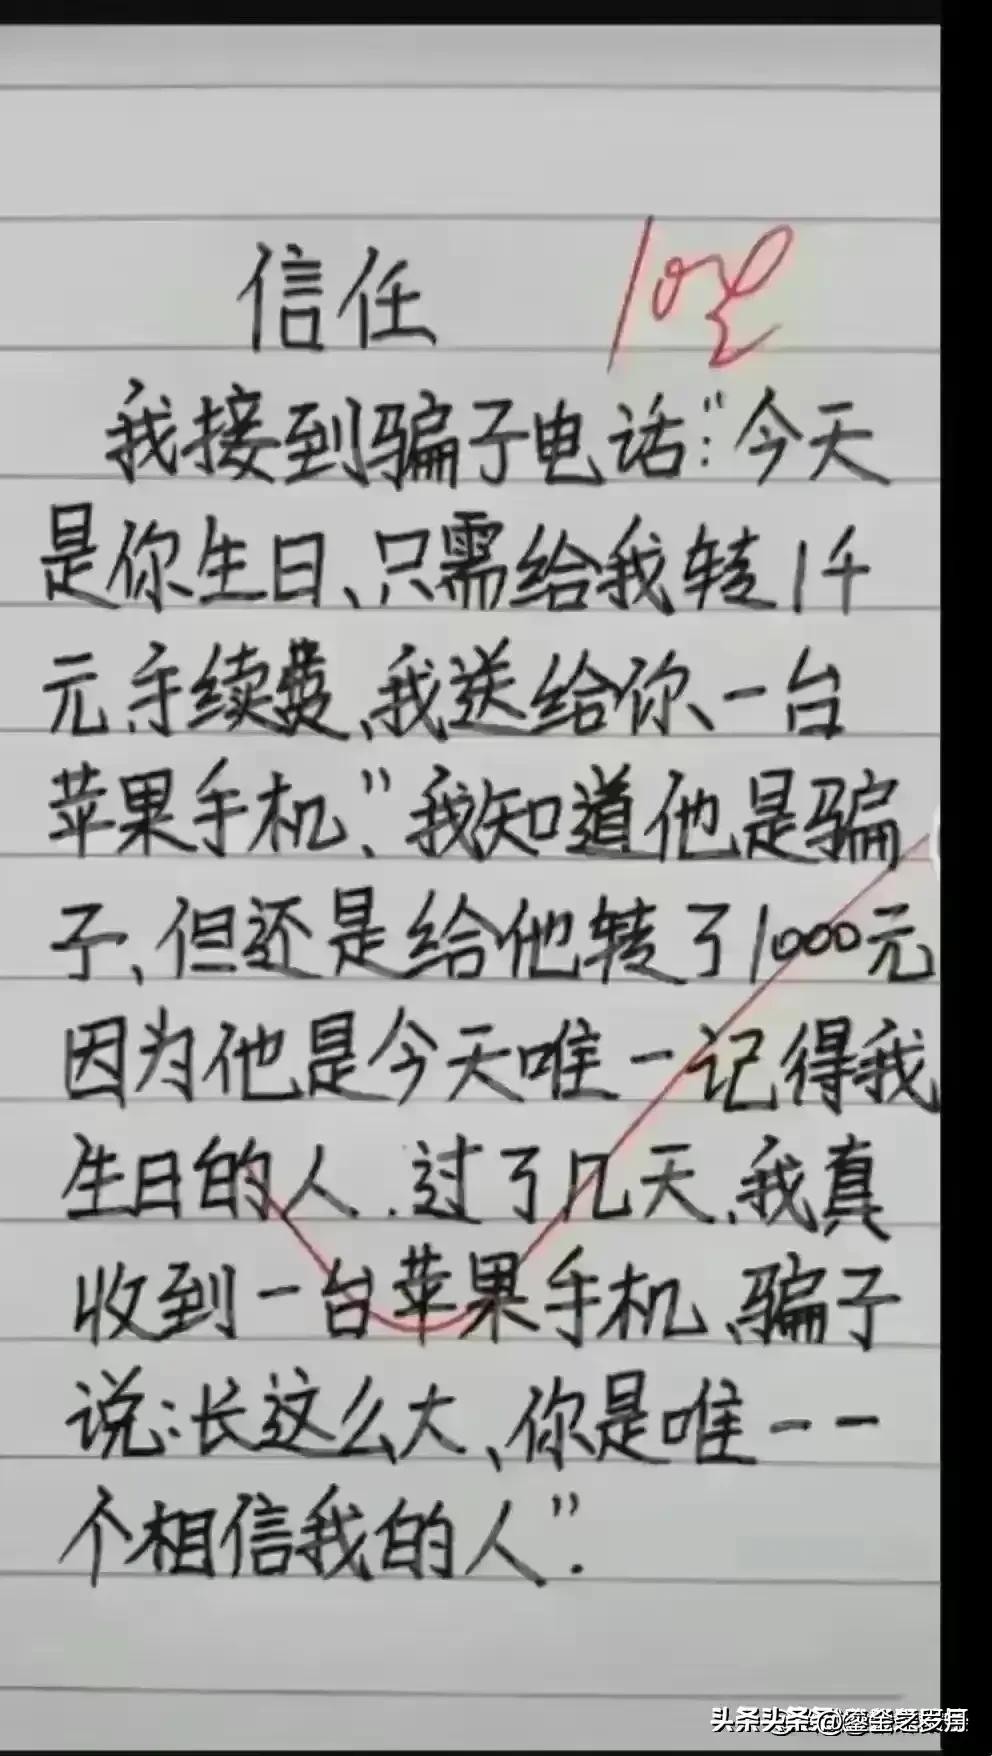 信任
我接到骗子电话:“今天
是你生日、只需给我转1千
元手续费、我送给你一台
苹果手机、”我知道他是骗
子、但还是给他转了1000元
因为他是今天唯一记得我
生日的人.过了几天、我真
收到一台苹果手机、骗子
说:长这么大、你是唯一一
个相信我的人”.
头条